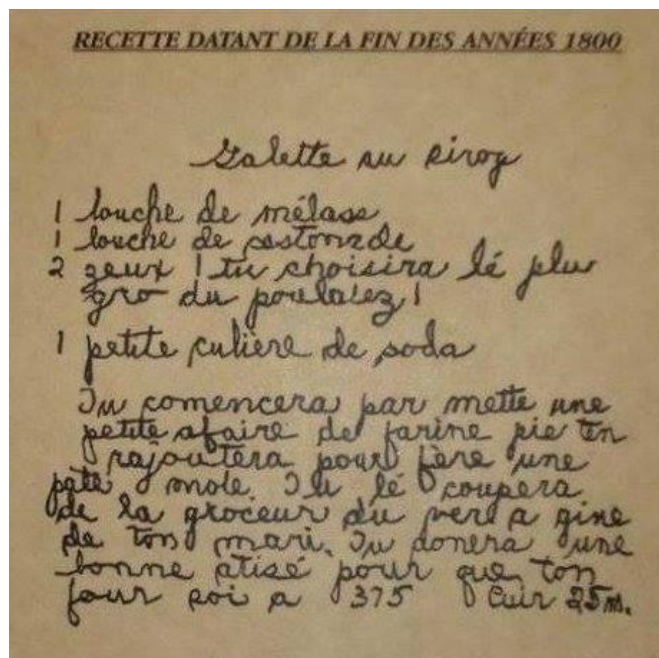 RECETTE DATANT DE LA FIN DES ANNÉES 1800
Galette au sirop
1 louche de mélase
1 louche de castonade
2 zeux ! tu choisira lé plu
gro du poulalez !
1 petite culière de soda
Tu comencera par mette une
petite afaire de farine pie t'en
rajoutera pour fère une
pâte mole. Tu lé coupera
de la groceur du vere a gine
de ton mari. Tu donera une
bonne atisé pour que ton
four soi a 375 Cuir 25 m.